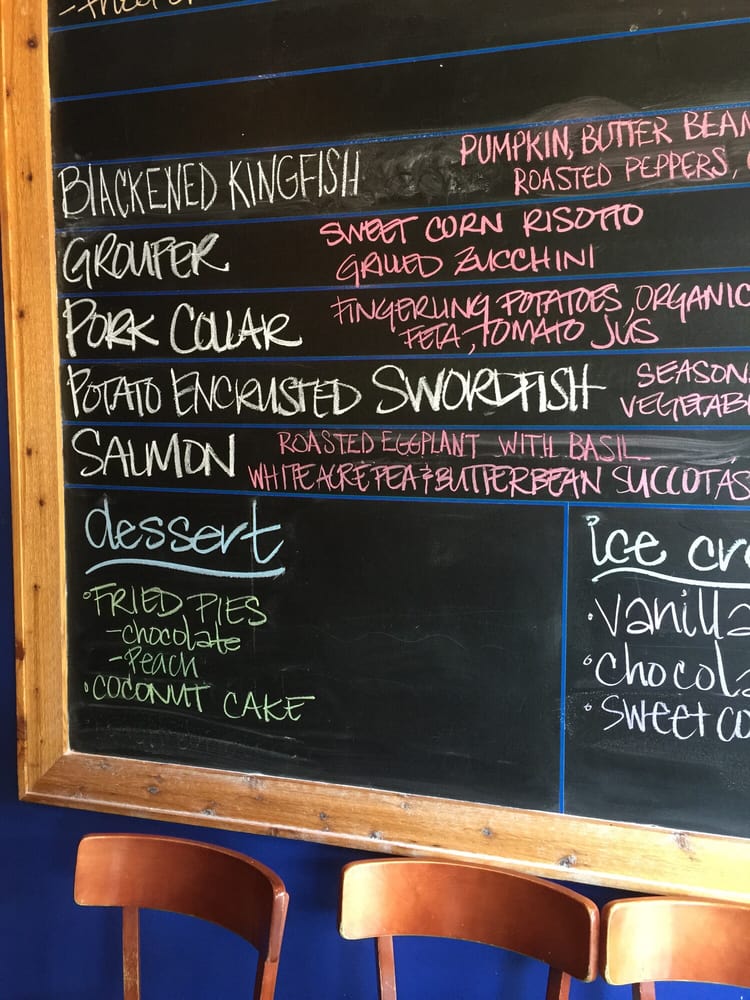 BLACKENED KINGFISH
PUMPKIN, BUTTER BEAN
ROASTED PEPPERS,
GROUPER
SWEET CORN RISOTTO
GRILLED ZUCCHINI
PORK COLLAR
FINGERLING POTATOES, ORGANIC
FETA, TOMATO JUS
POTATO ENCRUSTED SWORDFISH
SEASON
VEGETAB
SALMON
ROASTED EGGPLANT WITH BASIL
WHITE ACRE PEA & BUTTERBEAN SUCCOTAS
dessert
FRIED PIES
-chocolate
-Peach
COCONUT CAKE
ice cr
vanilla
chocola
sweet co